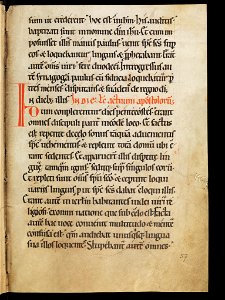 sum ut crederent. hoc est in ihm. His auditis
baptizati sunt in nomine dni ihu. Et cum im
posuisset illis manus paulus uenit sps scs sup
eos & loquebantur linguis & prophetabant. Erant
autē om̄s uiri fere duodeci. Introgressus au
tē synagogā paulus cū fiducia loquebatur p
tres menses disputans & suadens de regno di.
In dieb; illis. Lc actuum apostolorū.
Dum complerentur dies pentecostes. erant
omnes discipuli pariter in eodē loco. & factus
est repente de celo sonus tanquā aduenientis
sps uehementis & repleuit totā domū ubi e
rant sedentes. & apparuerunt illis dispertite lin
gue tamquā ignis. seditq; supra singulos eorū
& repleti sunt om̄s spu sco & ceperunt loqui
uariis linguis put sps scs dabat eloqui illis.
Erant autē in ierlm habitantes iudei uiri re
ligiosi ex omni natione que sub celo est. Facta
autē hac uoce conuenit multitudo & mente
confusa est. qm audiebat unusquisq; lingua
sua illos loquentes. Stupebant autē omnes